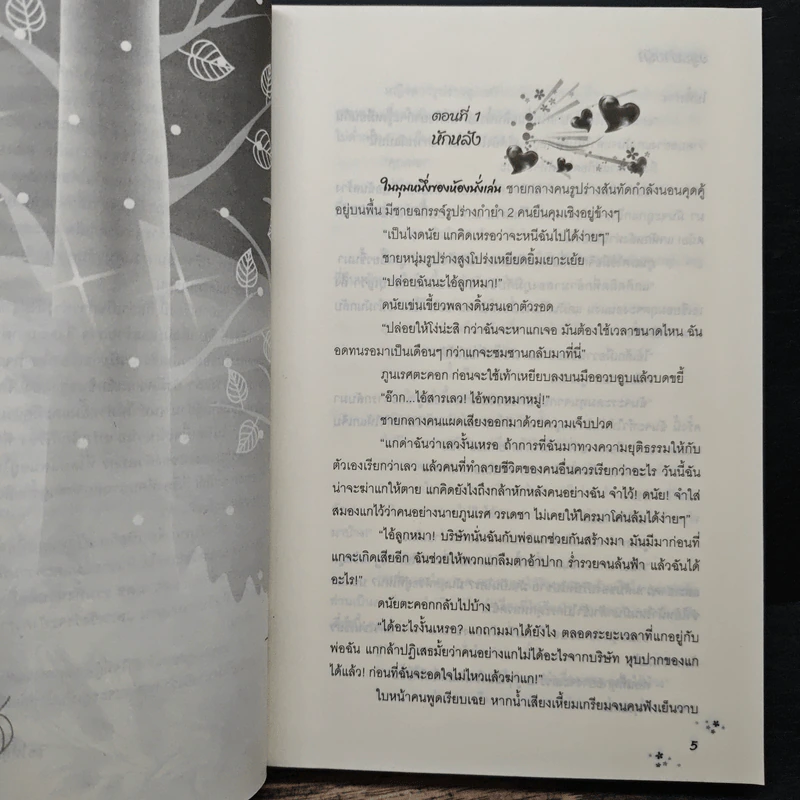 ตอนที่ 1
หักหลัง
ในมุมหนึ่งของห้องนั่งเล่น ชายกลางคนรูปร่างสันทัดกำลังนอนคุดคู้
อยู่บนพื้น มีชายฉกรรจ์รูปร่างกำยำ 2 คนยืนคุมเชิงอยู่ข้างๆ
“เป็นไงดนัย แกคิดเหรอว่าจะหนีฉันไปได้ง่ายๆ”
ชายหนุ่มรูปร่างสูงโปร่งเหยียดยิ้มเยาะเย้ย
“ปล่อยฉันนะไอ้ลูกหมา!”
ดนัยเข่นเขี้ยวพลางดิ้นรนเอาตัวรอด
“ปล่อยให้โง่น่ะสิ กว่าฉันจะหาแกเจอ มันต้องใช้เวลาขนาดไหน ฉัน
อดทนรอมาเป็นเดือนๆ กว่าแกจะซมซานกลับมาที่นี่”
ภูนเรศตะคอก ก่อนจะใช้เท้าเหยียบลงบนมืออวบอูบแล้วบดขยี้
“อ๊าก...ไอ้สารเลว! ไอ้พวกหมาหมู่!”
ชายกลางคนแผดเสียงออกมาด้วยความเจ็บปวด
“แกด่าฉันว่าเลวงั้นเหรอ ถ้าการที่ฉันมาทวงความยุติธรรมให้กับ
ตัวเองเรียกว่าเลว แล้วคนที่ทำลายชีวิตของคนอื่นควรเรียกว่าอะไร วันนี้ฉัน
น่าจะฆ่าแกให้ตาย แกคิดยังไงถึงกล้าหักหลังคนอย่างฉัน จำไว้! ดนัย! จำใส่
สมองแกไว้ว่าคนอย่างนายภูนเรศ วรเดชา ไม่เคยให้ใครมาโค่นล้มได้ง่ายๆ”
“ไอ้ลูกหมา! บริษัทนั่นฉันกับพ่อแกช่วยกันสร้างมา มันมีมาก่อนที่
แกจะเกิดเสียอีก ฉันช่วยให้พวกแกลืมตาอ้าปาก ร่ำรวยจนล้นฟ้า แล้วฉันได้
อะไร!”
ดนัยตะคอกกลับไปบ้าง
“ได้อะไรงั้นเหรอ? แกถามมาได้ยังไง ตลอดระยะเวลาที่แกอยู่กับ
พ่อฉัน แกกล้าปฏิเสธมั้ยว่าคนอย่างแกไม่ได้อะไรจากบริษัท หุบปากของแก
ได้แล้ว! ก่อนที่ฉันจะอดใจไม่ไหวแล้วฆ่าแก!”
ใบหน้าคนพูดเรียบเฉย หากน้ำเสียงเหี้ยมเกรียมจนคนฟังเย็นวาบ
5